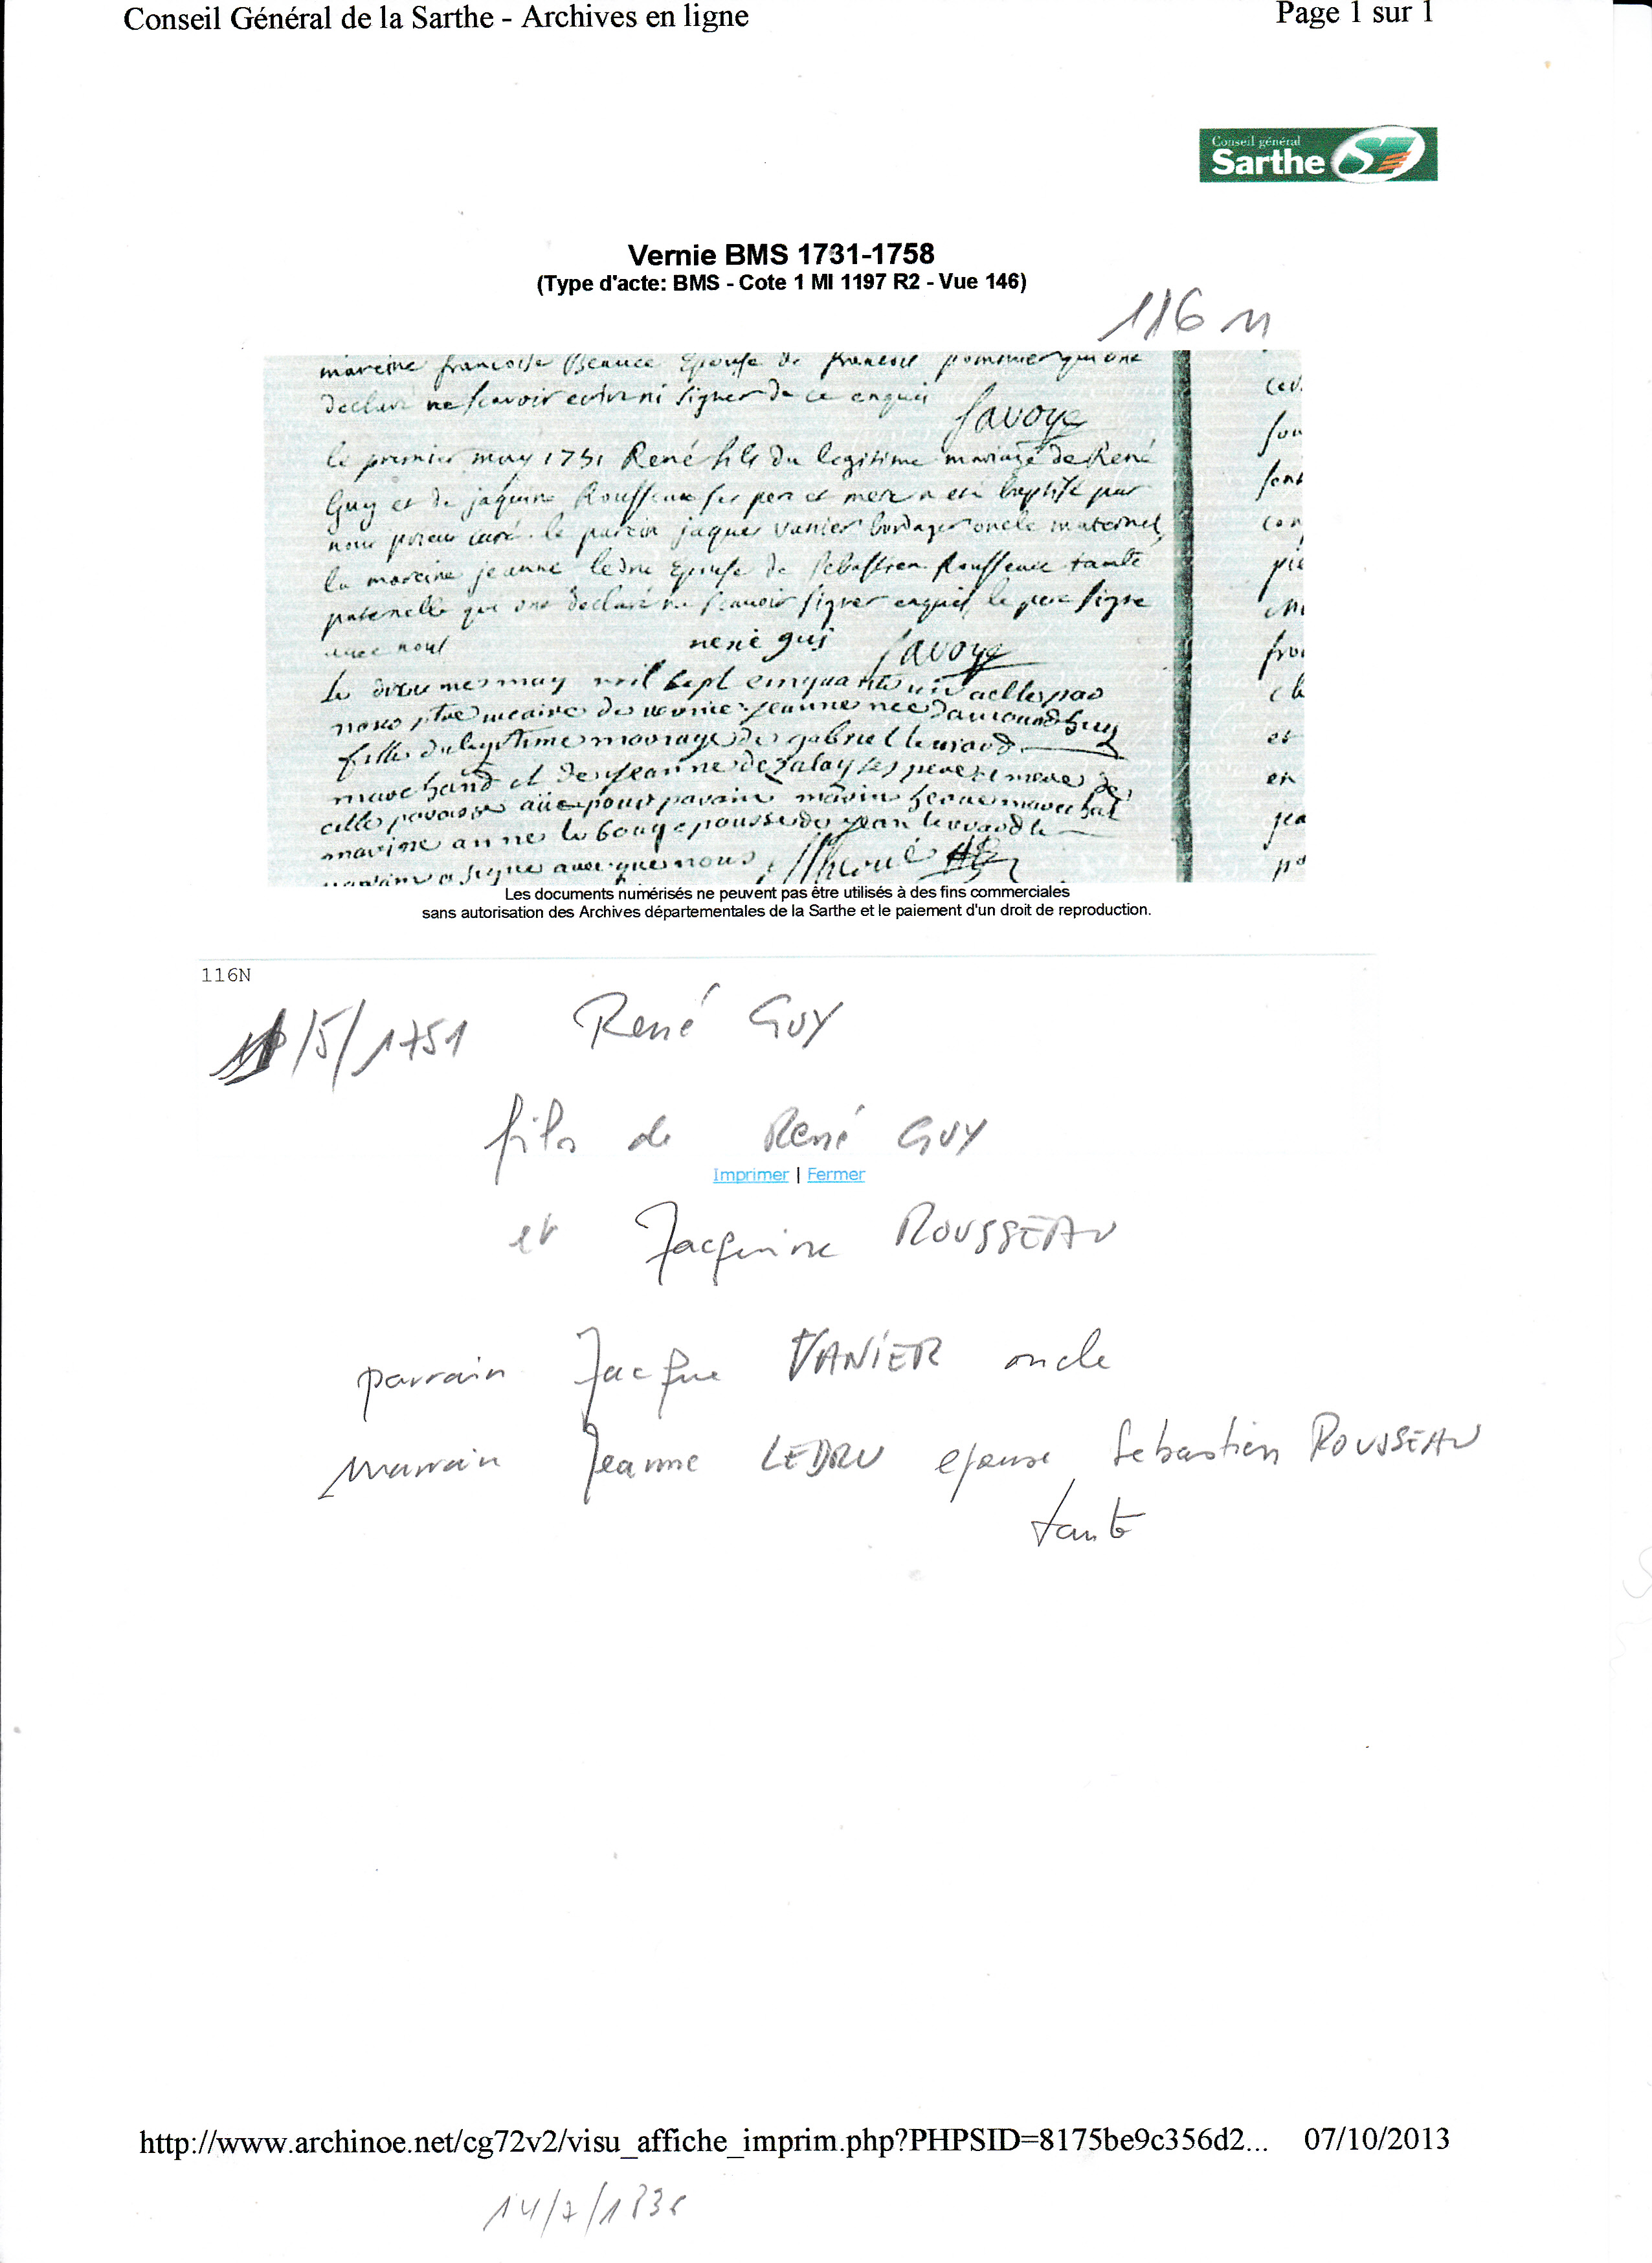 Conseil Général de la Sarthe - Archives en ligne
Page 1 sur 1
Conseil général
Sarthe
Vernie BMS 1731-1758
(Type d'acte: BMS - Cote 1 MI 1197 R2 - Vue 146)
116 N
mareine francoise Beauce Epouse de francois pommier qui ont
declaré ne scavoir ecrire ni signer de ce enquis
Savoye
le premier may 1751 René fils du legitime mariage de René
Guy et de jaquine Rousseau ses pere et mere a eté baptisé par
nous prieur curé le parein jaques vanier bordager oncle maternel
la mareine jeanne ledru Epouse de Sebastien Rousseau tante
paternelle qui ont declaré ne scavoir signer enquis le pere signe
avec nous
rené gui
Savoye
may mil sept cinquante
nous vicaire de vernie jeanne née d'aujourdhuy
fille du legitime mariage de gabriel
marchand et de jeanne de ses pere et mere de
cette paroisse a üe pour parain marin
marine anne epousse de jean
parain a signe avecque nous
Les documents numérisés ne peuvent pas être utilisés à des fins commerciales
sans autorisation des Archives départementales de la Sarthe et le paiement d'un droit de reproduction.
116N
/5/1751 René GUY
fils de René GUY
Imprimer | Fermer
et Jacquine ROUSSEAU
parrain Jacque VANIER oncle
marrain Jeanne LEDRU epouse Sebastien ROUSSEAU
tante
http://www.archinoe.net/cg72v2/visu_affiche_imprim.php?PHPSID=8175be9c356d2... 07/10/2013
14/7/183